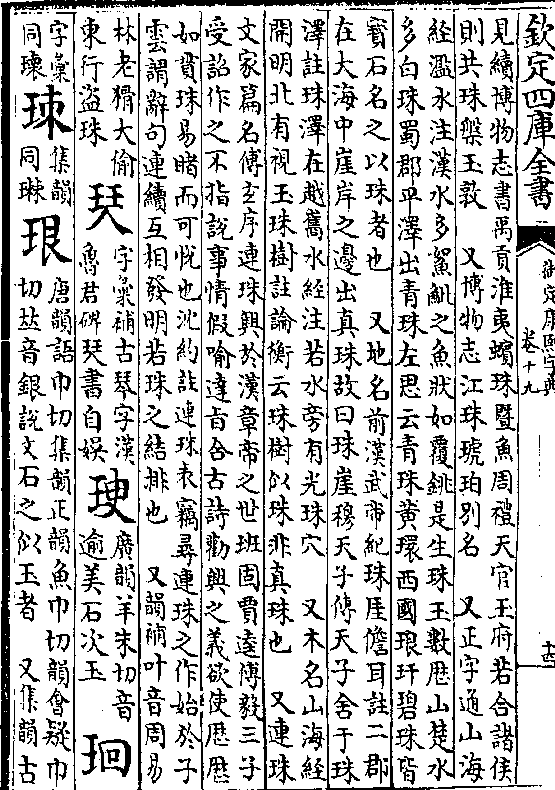 欽定四庫全書
御定康熙字典
卷十九
見續博物志書禹貢淮夷蠙珠暨魚周禮天官玉府若合諸侯
則共珠槃玉敦 又博物志江珠琥珀別名 又正字通山海
經濫水注漢水多鴽魮之魚狀如覆銚是生珠玉數歷山楚水
多白珠蜀郡平澤出青珠左思云青珠黃環西國琅玕碧珠皆
寶石名之以珠者也 又地名前漢武帝紀珠厓儋耳註二郡
在大海中崖岸之邊出真珠故曰珠崖穆天子傳天子舍于珠
澤註珠澤在越巂水經注若水旁有光珠穴 又木名山海經
開明北有視玉珠樹註論衡云珠樹似珠非真珠也 又連珠
文家篇名傅玄序連珠興於漢章帝之世班固賈逵傅毅三子
受詔作之不指說事情假喻達旨合古詩勸興之義欲使歷歷
如貫珠易睹而可悅也沈約註連珠表竊尋連珠之作始於子
雲謂辭句連續互相發明若珠之結排也 又韻補叶音周易
林老猾大偷
東行盜珠
珡
字彙補古琴字漢
魯君碑珡書自娛
廣韻羊朱切音
逾美石次玉
字彙
同瓌
集韻
同琳
珢
唐韻語巾切集韻正韻魚巾切韻會疑巾
切𠀤音銀說文石之似玉者 又集韻古